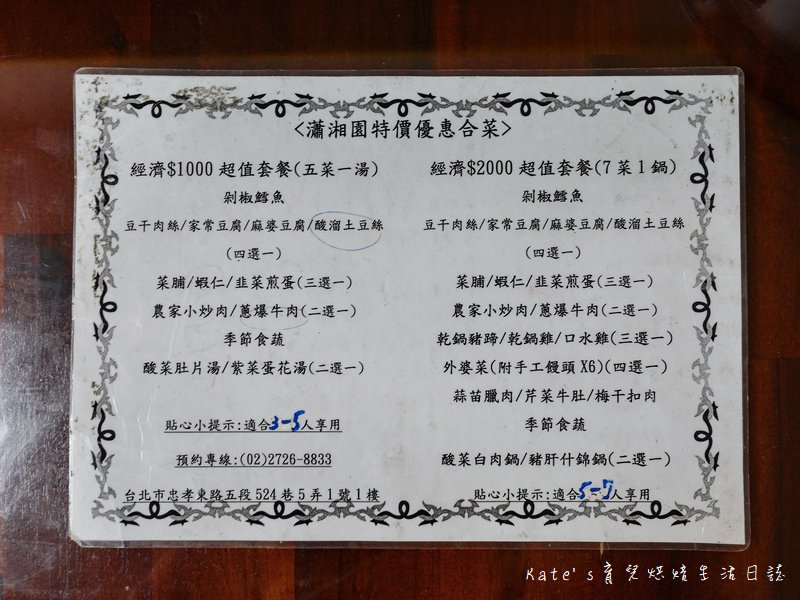 <瀟湘園特價優惠合菜>
經濟$1000 超值套餐(五菜一湯)
剁椒鱈魚
豆干肉絲/家常豆腐/麻婆豆腐/酸溜土豆絲
(四選一)
菜脯/蝦仁/韭菜煎蛋(三選一)
農家小炒肉/蔥爆牛肉(二選一)
季節食蔬
酸菜肚片湯/紫菜蛋花湯(二選一)
貼心小提示:適合3-5人享用
預約專線:(02)2726-8833
台北市忠孝東路五段 524 巷 5 弄 1 號 1 樓
經濟$2000 超值套餐(7 菜 1 鍋)
剁椒鱈魚
豆干肉絲/家常豆腐/麻婆豆腐/酸溜土豆絲
(四選一)
菜脯/蝦仁/韭菜煎蛋(三選一)
農家小炒肉/蔥爆牛肉(二選一)
乾鍋豬蹄/乾鍋雞/口水雞(三選一)
外婆菜(附手工饅頭 X6)(四選一)
蒜苗臘肉/芹菜牛肚/梅干扣肉
季節食蔬
酸菜白肉鍋/豬肝什錦鍋(二選一)
貼心小提示:適合5-7人享用
Kate's育兒烘焙生活日誌